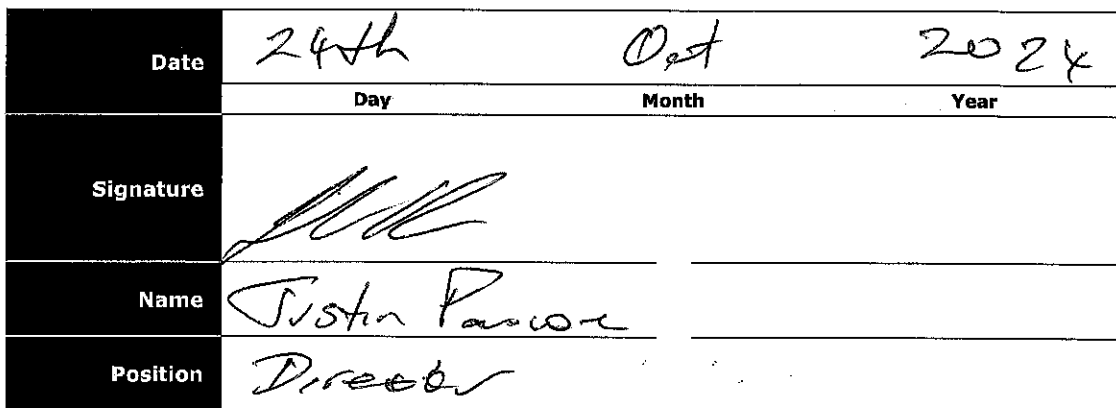 Date 24th Oct 2024
Day Month Year
Signature
Name Justin Pascoe
Position Director